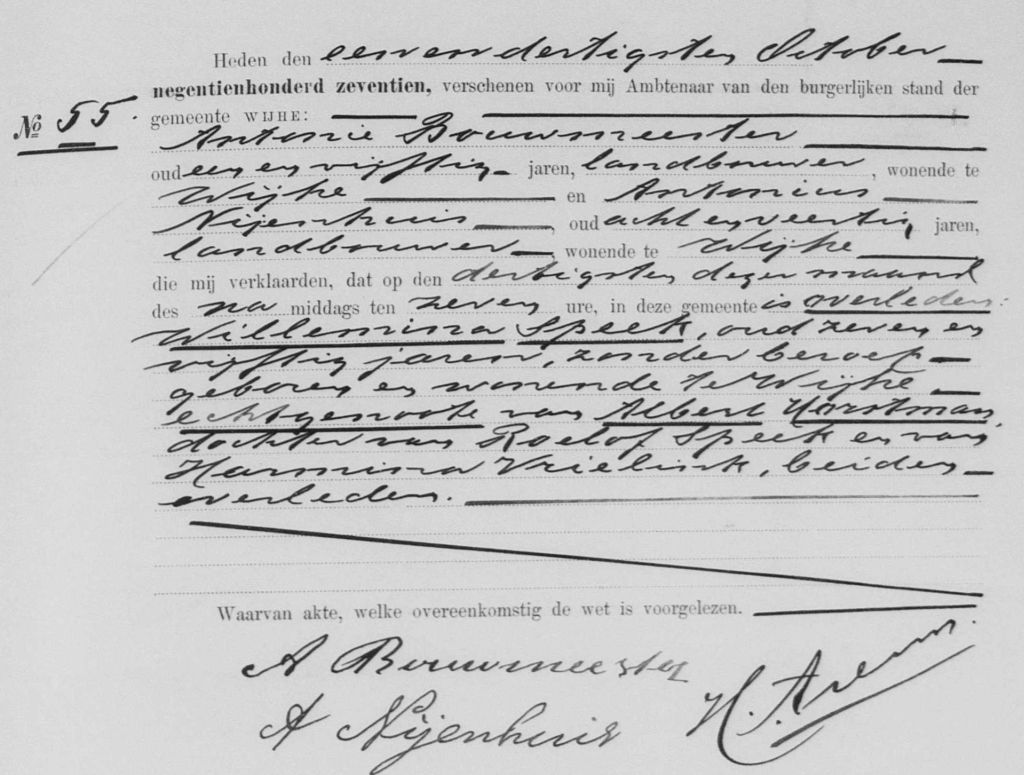 Heden den een en dertigsten October
negentienhonderd zeventien, verschenen voor mij Ambtenaar van den burgerlijken stand der
No 55. gemeente WIJHE:
Antonie Bouwmeester
oud een en vijftig jaren, landbouwer, wonende te
Wijhe en Antonius
Nijenhuis, oud acht en veertig jaren,
landbouwer, wonende te Wijhe
die mij verklaarden, dat op den dertigsten dezer maand
des na middags ten zeven ure, in deze gemeente is overleden:
Willemina Speek, oud zeven en
vijftig jaren, zonder beroep
geboren en wonende te Wijhe
echtgenoote van Albert Horstman,
dochter van Roelof Speek en van
Harmina Vrielink, beiden
overleden.
Waarvan akte, welke overeenkomstig de wet is voorgelezen.
A Bouwmeester
A Nijenhuis